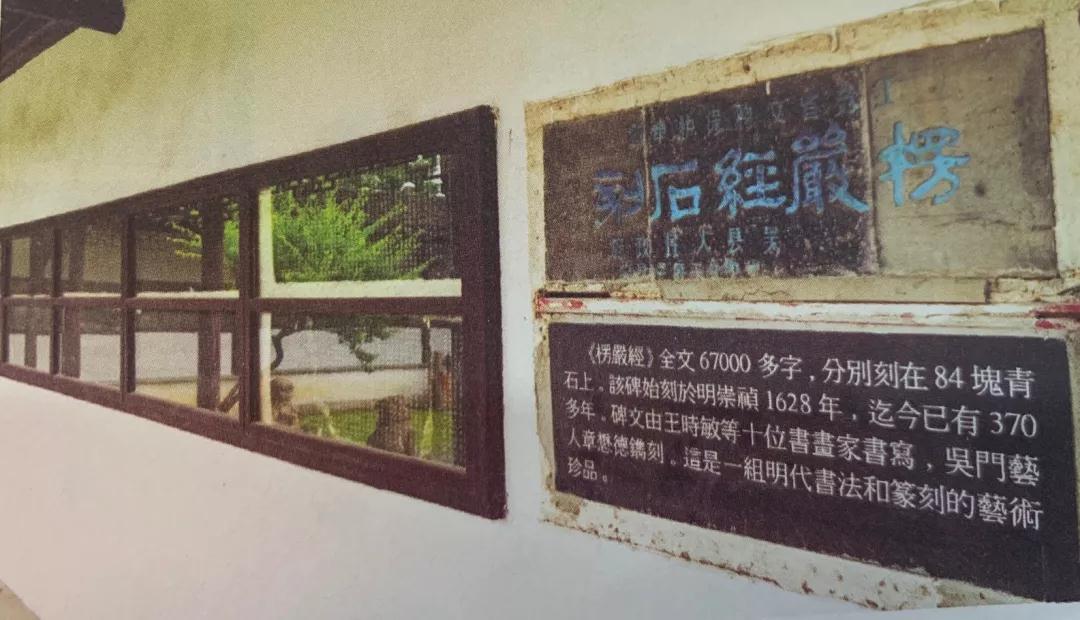 楞嚴經石刻
吴县人民政府
《楞嚴經》全文 67000 多字，分別刻在 84 塊青
石上。該碑始刻於明崇禎 1628 年，迄今已有 370
多年。碑文由王時敏等十位書畫家書寫，吳門藝
人章懋德鐫刻。這是一組明代書法和篆刻的藝術
珍品。